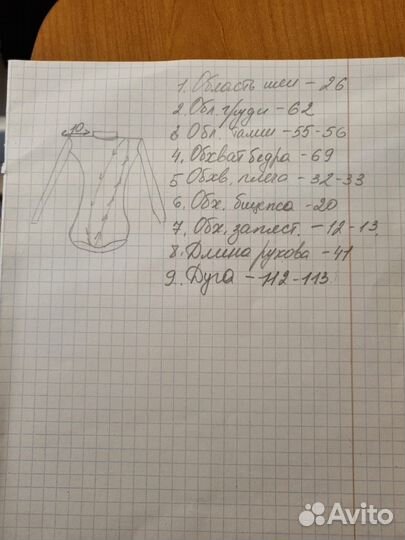 10
1. Область шеи - 26
2. Обл. груди - 62
3 Обл. талии - 55-56
4. Обхват бедра - 69
5 Обхв. плеча - 32-33
6. Обх. бицепса - 20
7. Обх. запяст. - 12-13
8. Длина рукова - 41
9. Дуга - 112-113
Avito